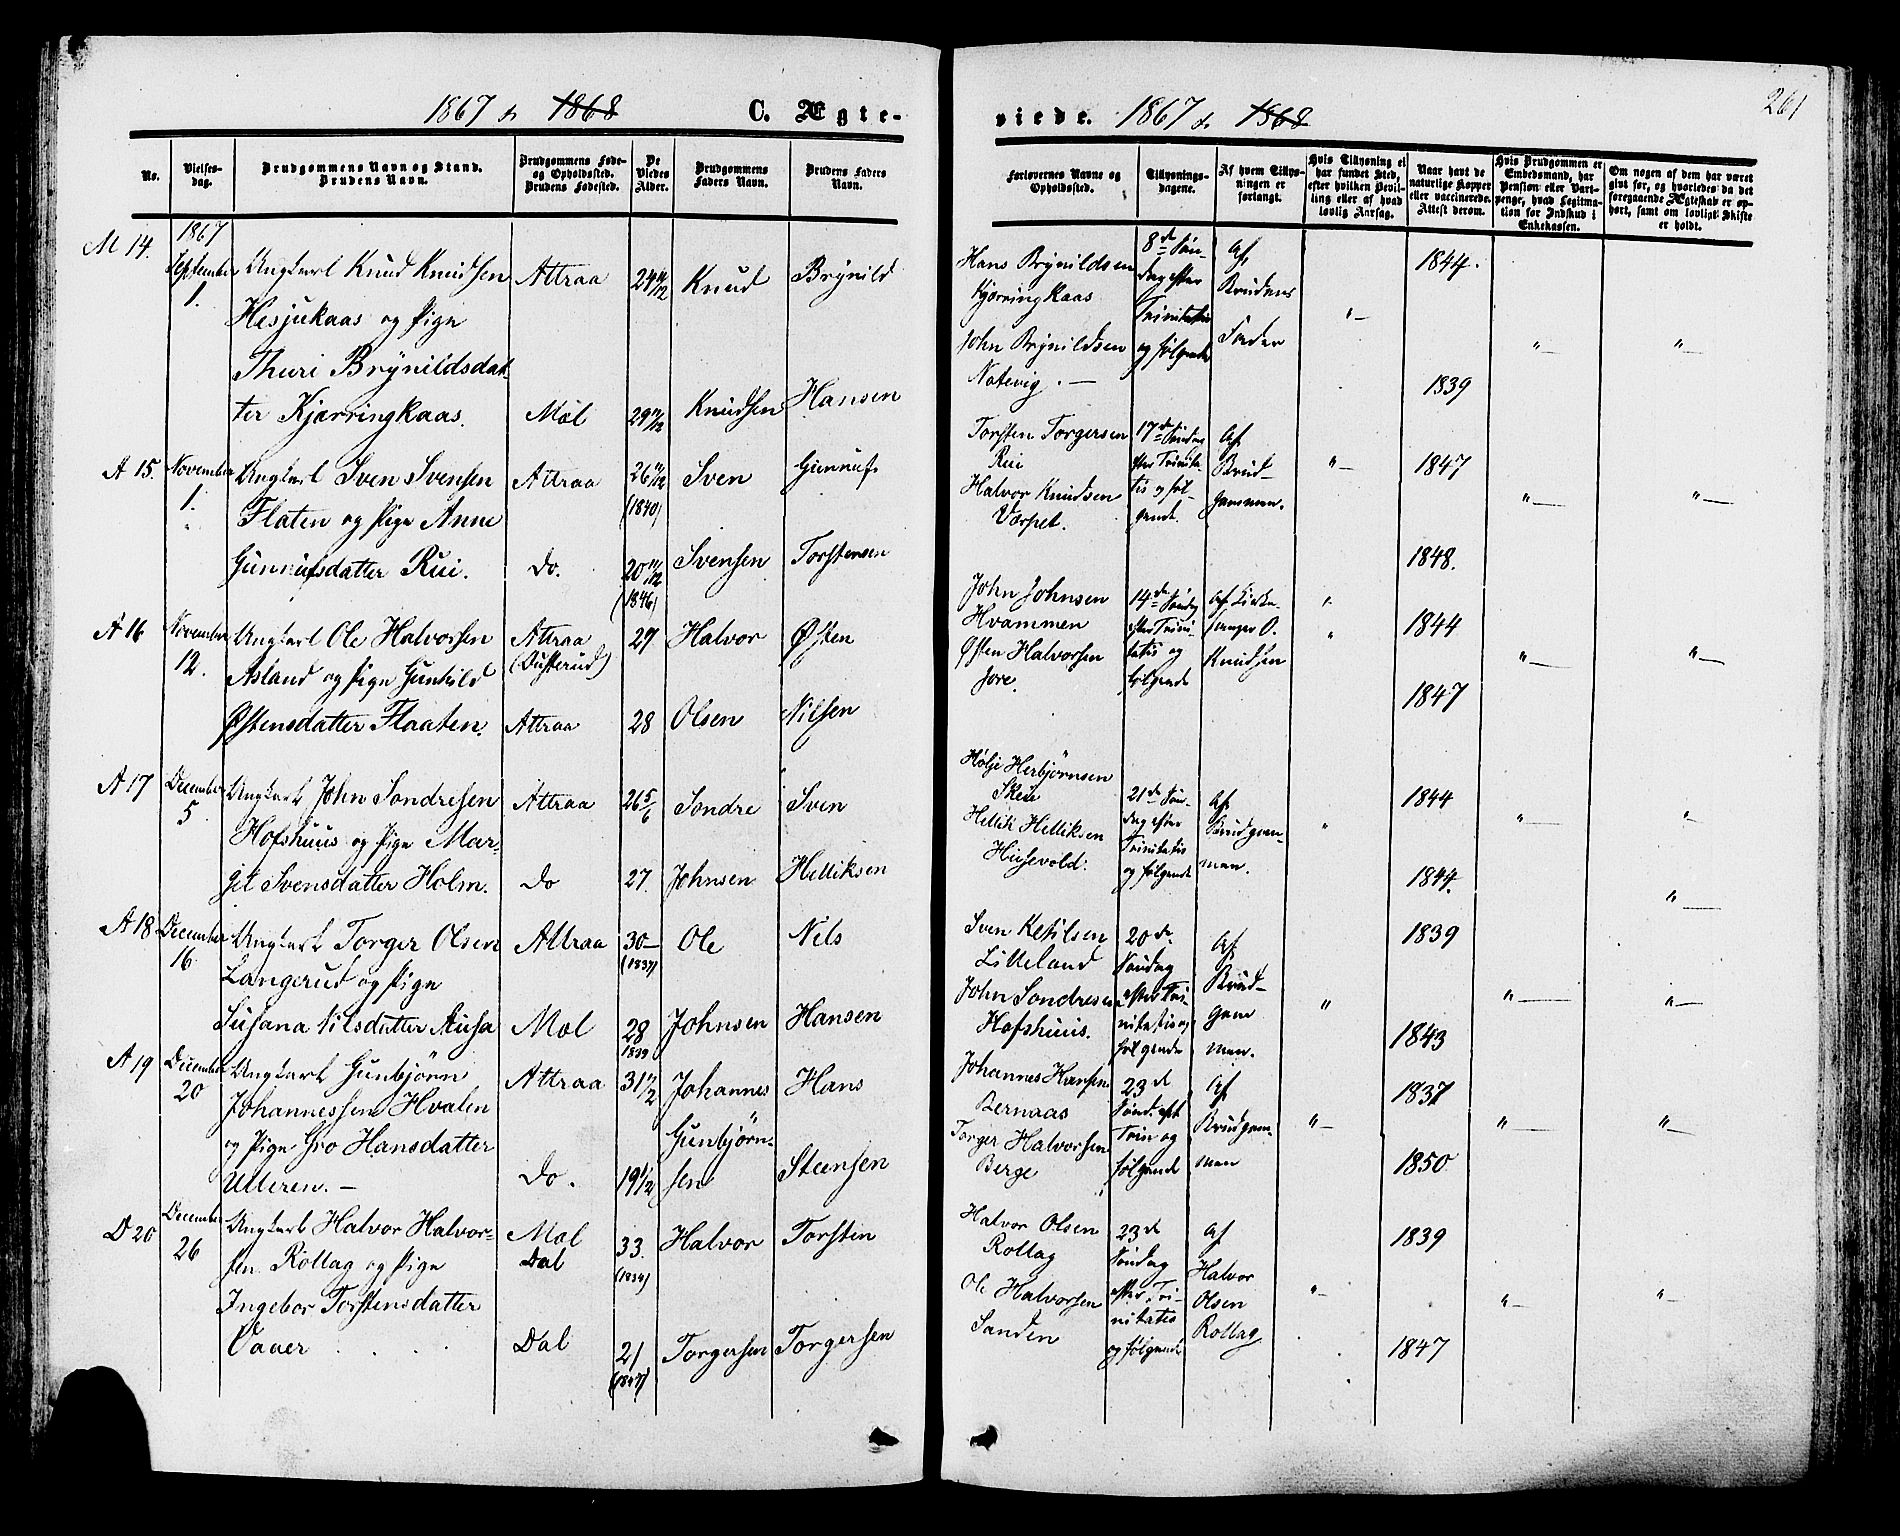 1867 & 1868 C. Ægte-
No.
Vielses-
dag.
Brudgommens Navn og Stand.
Brudens Navn.
Brudgommens Føde-
og Opholdssted.
Brudens Fødested.
De
Viedes
Alder.
Brudgommens
Faders Navn.
Brudens Faders
Navn.
1867
M 14. September Ungkarl Knud Knudsen Attraa 24 Knud Brynild
1. Hesjukaas og Pige
Thuri Brynildsdat-
ter Kjærringkaas. Møl 29 Knudsen Hansen
A 15. November Ungkarl Sven Svensen Attraa 26 Sven Gunnuf
1. Flaten og Pige Anne (1840)
Gunnufsdatter Rui. Do. 20 Svensen Torstensen
(1846)
A 16 November Ungkarl Ole Halvorsen Attraa 27 Halvor Østen
12. Asland og Pige Gunhild (Dusterud)
Østensdatter Flaaten. Attraa 28 Olsen Nilsen
A 17 December Ungkarl John Sondresen Attraa 26 5/6 Sondre Sven
5 Hofshuus og Pige Mar-
git Svensdatter Holm. Do 27. Johnsen Helliksen
A 18 December Ungkarl Torger Olsen Attraa 30 Ole Nels
16 Langerud og Pige (1837)
Susana Nilsdatter Ausa Møl 28 Johnsen Hansen
1839
A 19 December Ungkarl Gunbjørn Attraa 31 1/2 Johannes Hans
20 Johannessen Hvalen
og Pige Gro Hansdatter Gunbjørn-
Ulleren. — Do. 19 1/2 sen Steensen
D 20 December Ungkarl Halvor Halvor- Møl 33. Halvor Torstin
26 sen Rollag og Pige Dal (1834)
Ingebor Torstensdatter
Vaaer Dal 21 Torgersen Torgersen
viede. 1867 & 1868 261
Forlovernes Navne og
Opholdssted.
Tillysnings-
dagene.
Af hvem Tillys-
ningen er
forlangt.
Hvis Tillysning ei
har fundet Sted,
efter hvilken Bevil-
ling eller af hvad
lovlig Aarsag.
Naar havt de
naturlige Kopper
eller vaccinerede.
Attest derom.
Hvis Brudgommen er
Embedsmand, har
Pension eller Vart-
penge, hvad Legitima-
tion for Indskud i
Enkekassen.
Om nogen af dem har været
gift før, og hvorledes da det
foregaaende Ægteskab er op-
hørt, samt om lovligt Skifte
er holdt.
Hans Brynildsen 8de Søn- Af 1844.
Kjærringkaas dag efter Brudens
John Brynildsen Trinitatis Fader
Natevig. — og følgende 1839
Torsten Torgersen 17de Søndag Af
Rui efter Trinita- Brud- 1847
Halvor Knudsen tis og føl- gommen.
Værpet. gende. 1848.
John Johnsen 14de Søndag Af Kirke-
Hvammen efter Trini- sanger O. 1844
Østen Halvorsen tatis og Knudsen
Jore. følgende 1847
Hølje Herbjørnsen
Skeie 21de Søn- Af 1844
Hellik Helliksen dag efter Brudgom-
Husevold. Trinitatis men.
og følgende 1844.
Sven Ketilsen 20de Af 1839
Lilleland Søndag Brud-
John Sondresen efter Tri- gom
Hofshuus. nitatis og men. 1843
følgende
Johannes Hansen 23de Af 1837
Bernaas Sønd. eft Brudgom-
Torger Halvorsen Trin og men
Berge følgende 1850
Halvor Olsen 23de Af 1839
Rollag Søndag Halvor
Ole Halvorsen efter Tri- Olsen
Sanden nitatis Rollag
og følgende 1847